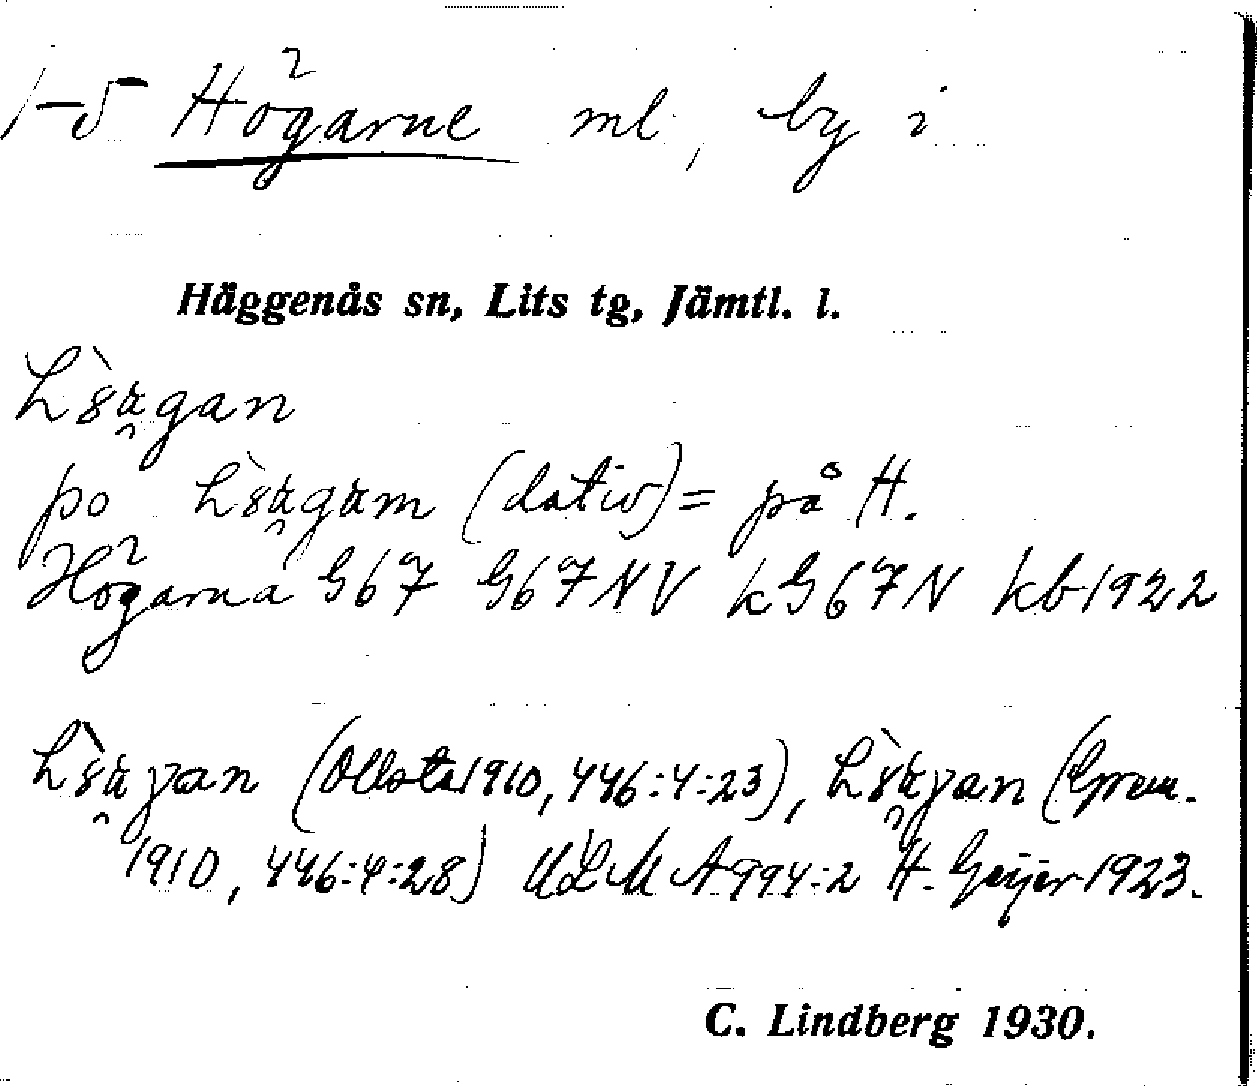 1-5 Högarne ml., by i
Häggenås sn, Lits tg, Jämtl. l.
po (dativ) = på H.
Högarna G67 G67NV kG67N kb1922
(Ollsta 1910, 446:4:23),
1910, 446:4:28) ULMA 994:2 H. Geijer 1923.
C. Lindberg 1930.